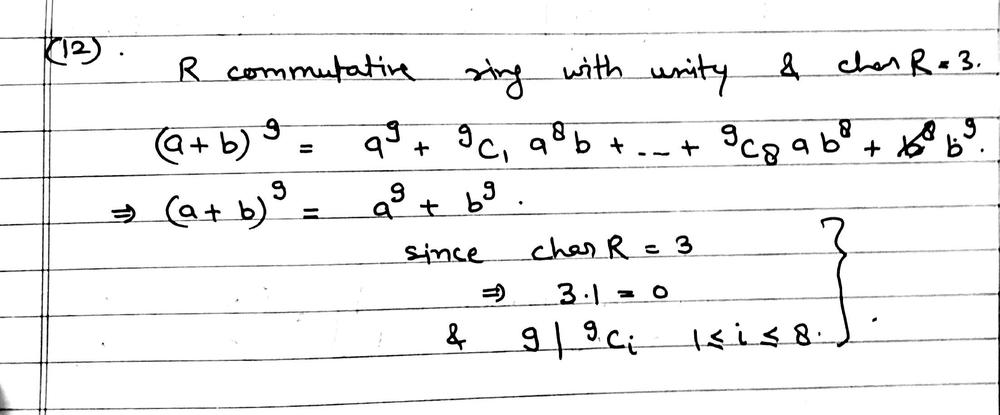 (12).
R commutative ring with unity & char R = 3.
(a + b)⁹ = a⁹ + ⁹C₁ a⁸b + --- + ⁹C₈ ab⁸ + b⁹.
⇒ (a + b)⁹ = a⁹ + b⁹.
since char R = 3
⇒ 3·1 = 0
& 9 | ⁹Cᵢ 1 ≤ i ≤ 8.